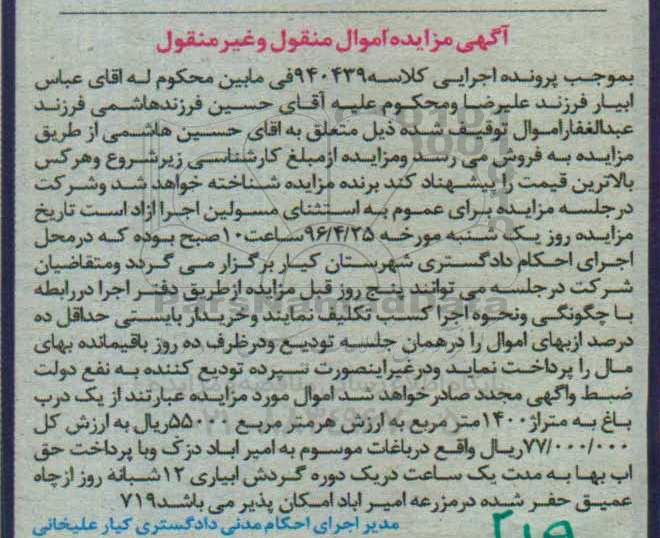 آگهی مزایده اموال منقول و غیر منقول
بموجب پرونده اجرایی کلاسه ۹۴۰۴۳۹فی مابین محکوم له اقای عباس
ابیار فرزند علیرضا ومحکوم علیه آقای حسین فرزندهاشمی فرزند
عبدالغفاراموال توقیف شده ذیل متعلق به اقای حسین هاشمی از طریق
مزایده به فروش می رسد ومزایده ازمبلغ کارشناسی زیرشروع وهرکس
بالاترین قیمت را پیشهناد کند برنده مزایده شناخته خواهد شد وشرکت
درجلسه مزایده برای عموم به استثنای مسولین اجرا ازاد است تاریخ
مزایده روز یک شنبه مورخه ۹۶/۴/۲۵ساعت۱۰صبح بوده که درمحل
اجرای احکام دادگستری شهرستان کیار برگزار می گردد ومتقاضیان
شرکت درجلسه می توانند پنج روز قبل مزایده ازطریق دفتر اجرا دررابطه
با چگونگی ونحوه اجرا کسب تکلیف نمایند وخریدار بایستی حداقل ده
درصد ازبهای اموال را درهمان جلسه تودیع ودرظرف ده روز باقیمانده بهای
مال را پرداخت نماید ودرغیراینصورت سپرده تودیع کننده به نفع دولت
ضبط واگهی مجدد صادرخواهد شد اموال مورد مزایده عبارتند از یک درب
باغ به متراژ۱۴۰۰متر مربع به ارزش هرمتر مربع ۵۵۰۰۰ریال به ارزش کل
۷۷/۰۰۰/۰۰۰ریال واقع درباغات موسوم به امیر اباد دزک وبا پرداخت حق
اب بها به مدت یک ساعت دریک دوره گردش ابیاری ۱۲شبانه روز ازچاه
عمیق حفر شده درمزرعه امیر اباد امکان پذیر می باشد۷۱۹
مدیر اجرای احکام مدنی دادگستری کیار علیخانی
۲۱۹
ParsNamadData